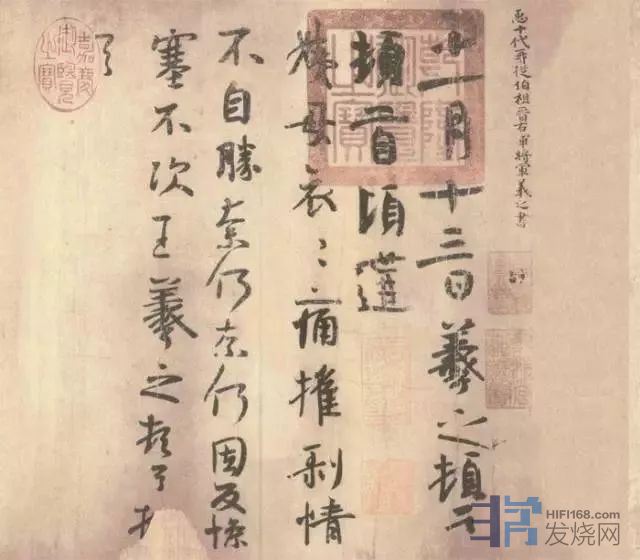 臣十代再從伯祖晉右軍將軍羲之書
十一月十三日羲之頓首
頓首頃遘
姨母哀哀痛摧剝情
不自勝奈何奈何因反慘
塞不次王羲之頓首
乾隆御覽之寶
嘉慶御覽之寶
HIFI168.com
发烧网